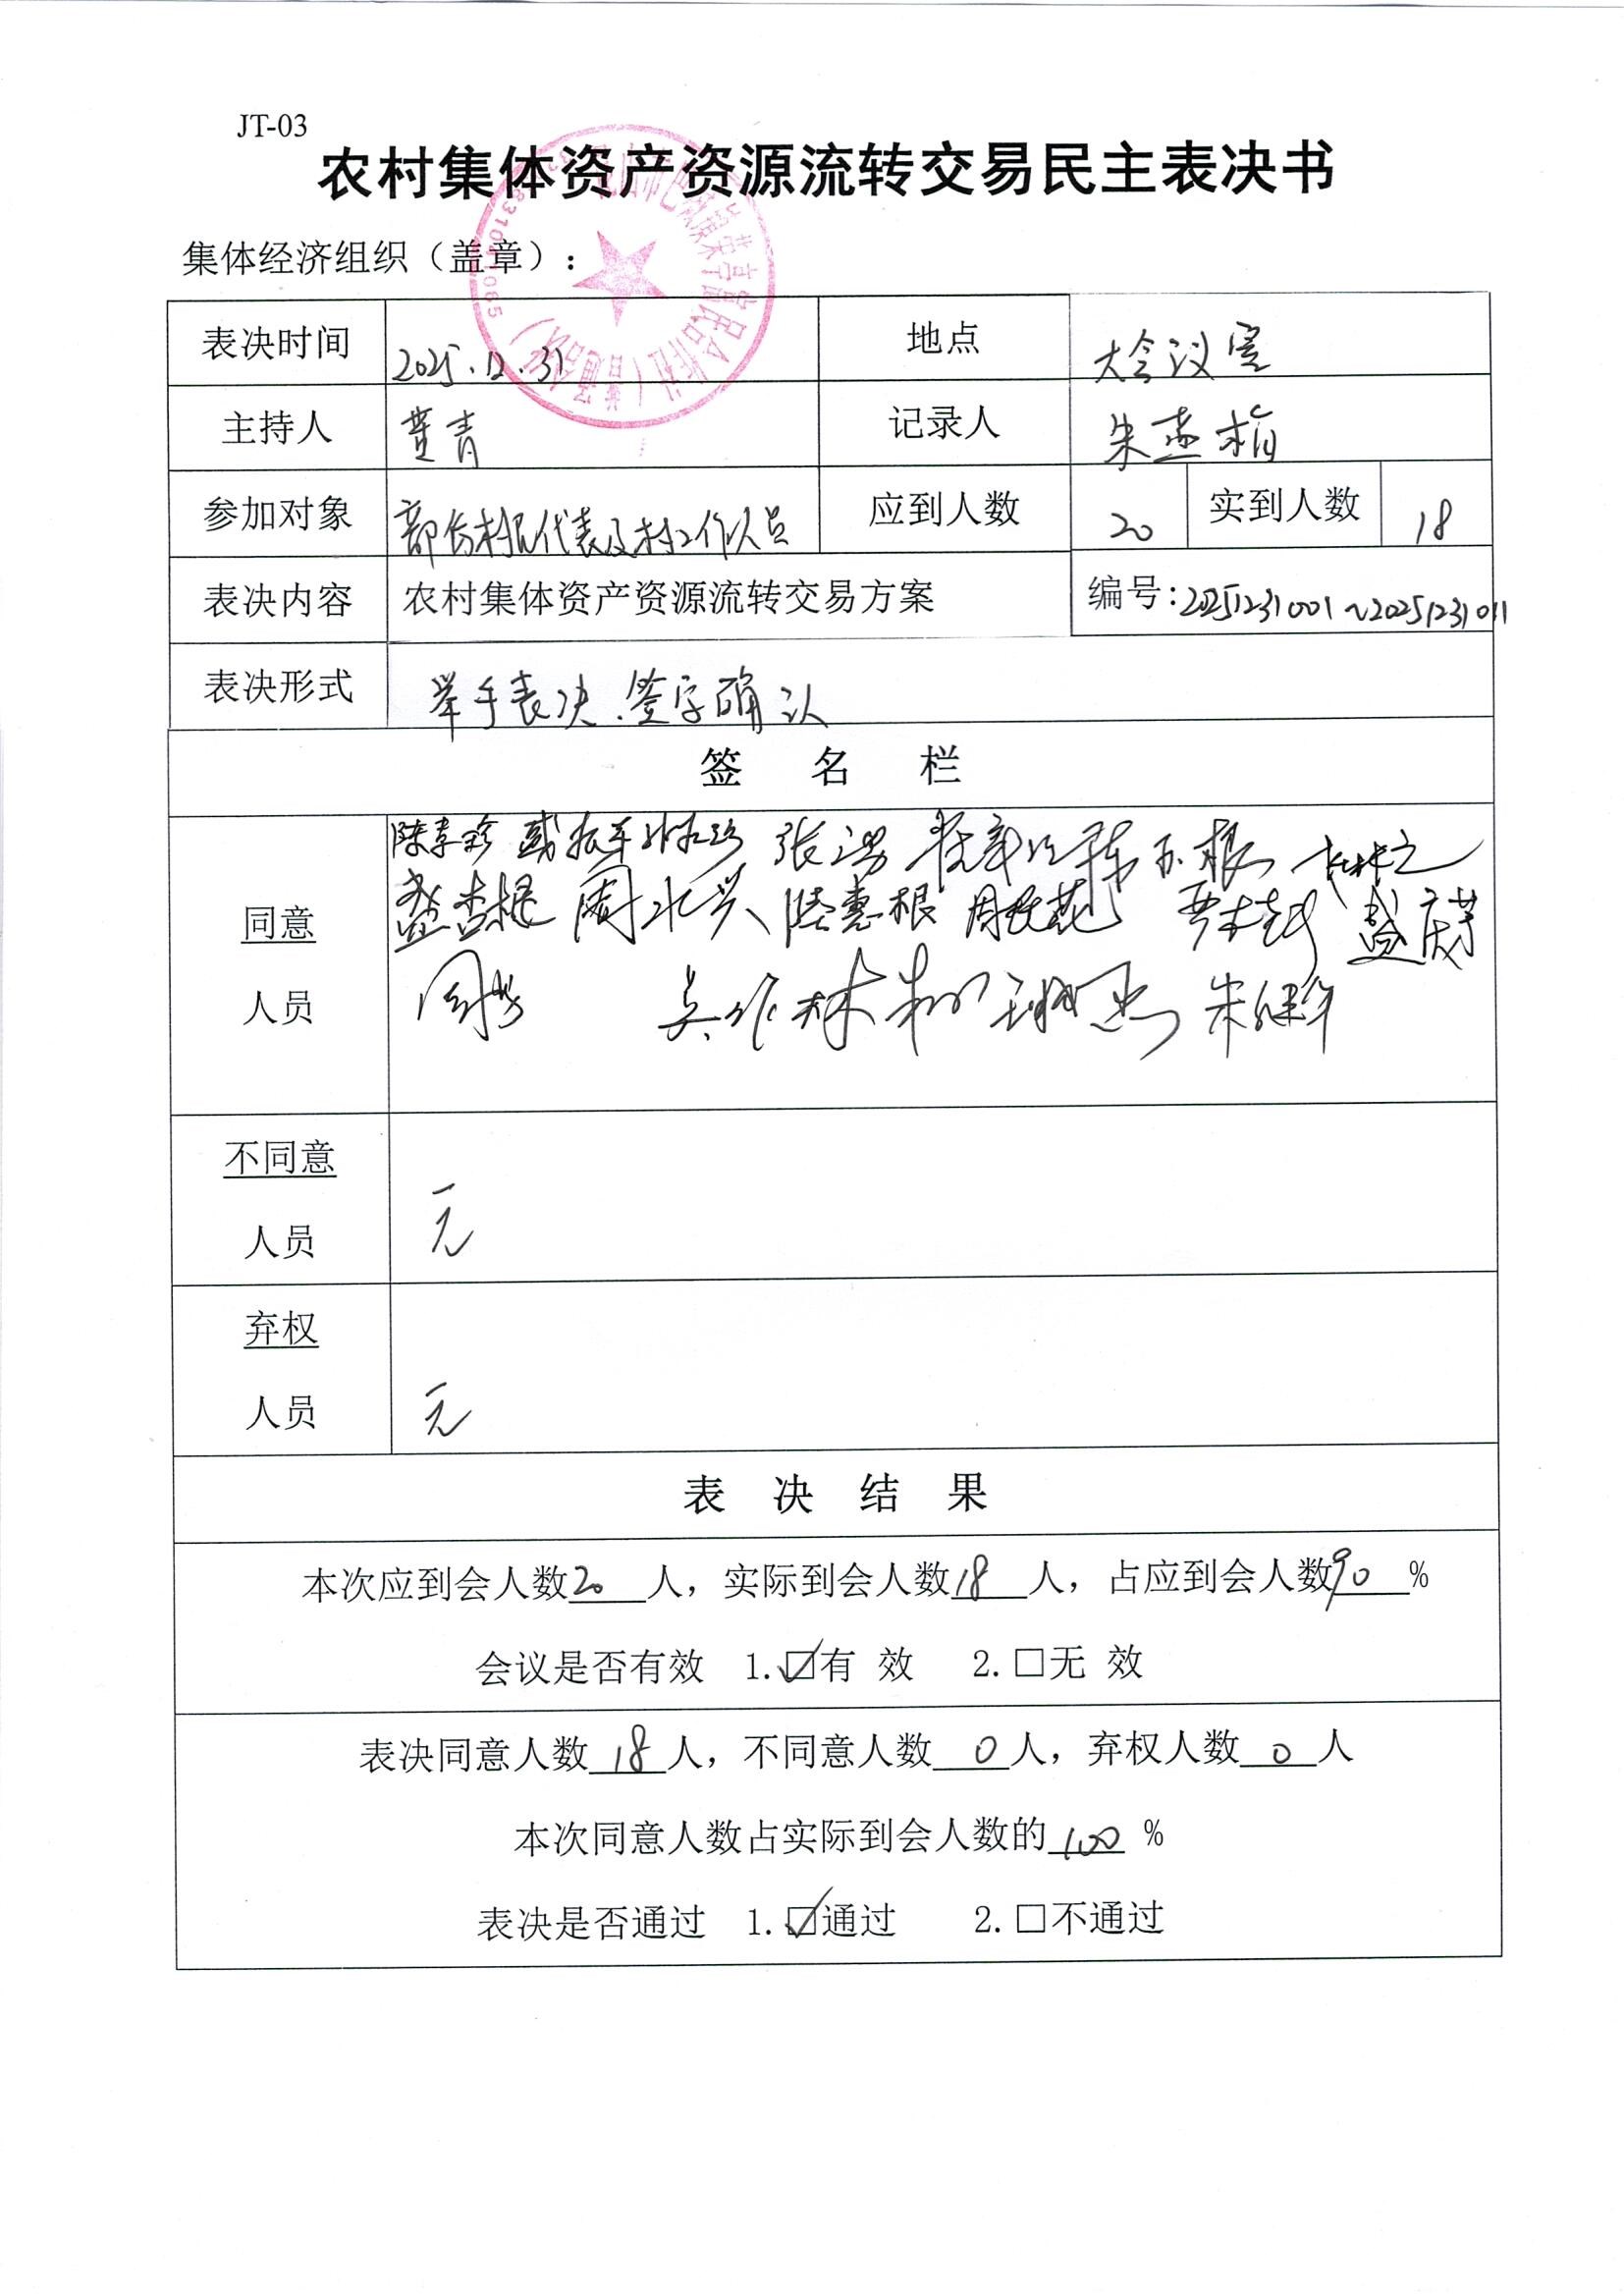 JT-03
农村集体资产资源流转交易民主表决书
集体经济组织（盖章）：
表决时间 2025.12.31 地点 大会议室
主持人 黄青 记录人 朱燕
参加对象 部份村民代表及村工作人员 应到人数 20 实到人数 18
表决内容 农村集体资产资源流转交易方案 编号：20251231001~20251231011
表决形式 举手表决.签字确认
签 名 栏
同意
人员
陈 珍 张 陈
盛杏根 周北兴 陆惠根 周 盛
周 吴 林 朱
不同意
人员
无
弃权
人员
无
表 决 结 果
本次应到会人数20人，实际到会人数18人，占应到会人数90%
会议是否有效 1.☑有 效 2.□无 效
表决同意人数18人，不同意人数0人，弃权人数0人
本次同意人数占实际到会人数的100%
表决是否通过 1.☑通过 2.□不通过